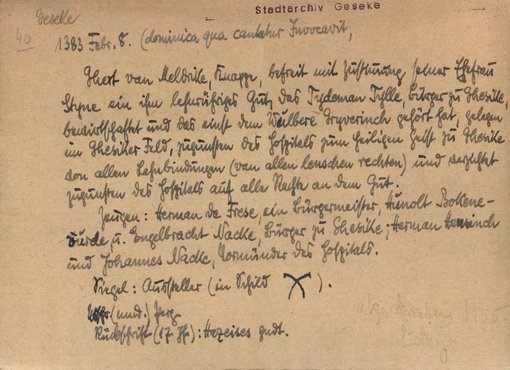 Stadtarchiv Geseke
Geseke
40
1383 Febr. 8. (dominica qua cantatur Invocavit)
Ghert van Meldrike, Knappe, befreit mit Zustimmung seiner Ehefrau
Styne ein ihm lehnrühriges Gut, das Tydeman Tylle, Bürger zu Ghesike,
bewirtschaftet und das einst dem Wulbere Gryverinch gehört hat, gelegen
im Ghesiker Feld, zugunsten des Hospitals zum heiligen Geist zu Ghesike
von allen Lehnbindungen (van allen lenschen rechten) und verzichtet
zugunsten des Hospitals auf alle Rechte an dem Gut.
Zeugen: Herman de Frese, ein Bürgermeister, Hunolt Bokene-
vorde u. Engelbracht Nacke, Bürger zu Ghesike; Herman
und Johannes Nacke, Vormünder des Hospitals.
Siegel: Aussteller (in Schild X).
(nnd.) Perg.
Rückschrift (17. Jh.): gudt.